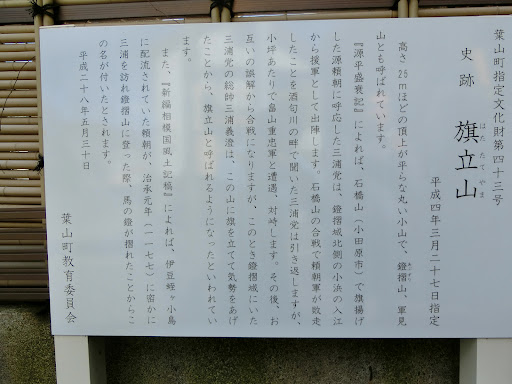 葉山町指定文化財第四十三号
史跡 旗立山
はたたてやま
平成四年三月二十七日指定
高さ26mほどの頂上が平らな丸い小山で、鐙摺山、軍見
あぶずり
山とも呼ばれています。
『源平盛衰記』によれば、石橋山(小田原市)で旗揚げ
した源頼朝に呼応した三浦党は、鐙摺城北側の小浜の入江
から援軍として出陣します。石橋山の合戦で頼朝軍が敗走
したことを酒匂川の畔で聞いた三浦党は引き返しますが、
小坪あたりで畠山重忠軍と遭遇、対峙します。その後、お
互いの誤解から合戦になりますが、このとき鐙摺城にいた
三浦党の総帥三浦義澄は、この山に旗を立てて気勢をあげ
たことから、旗立山と呼ばれるようになったといわれてい
ます。
また、『新編相模国風土記稿』によれば、伊豆蛭ヶ小島
に配流されていた頼朝が、治承元年(一一七七)に密かに
三浦を訪れ鐙摺山に登った際、馬の鐙が摺れたことからこ
の名が付いたとされます。
平成二十八年五月三十日
葉山町教育委員会